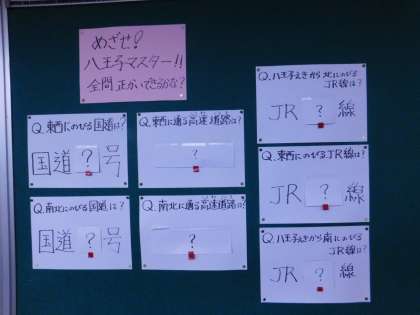 めざせ!
八王子マスター!!
全問正かいできるかな?
Q.東西にのびる国道は?
国道?号
Q.南北にのびる国道は?
国道?号
Q.東西に通る高速道路は?
?
Q.南北に通る高速道路は?
?
Q.八王子えきから北にのびる
JR線は?
JR?線
Q.東西にのびるJR線は?
JR?線
Q.八王子えきから南にのびる
JR線は?
JR?線